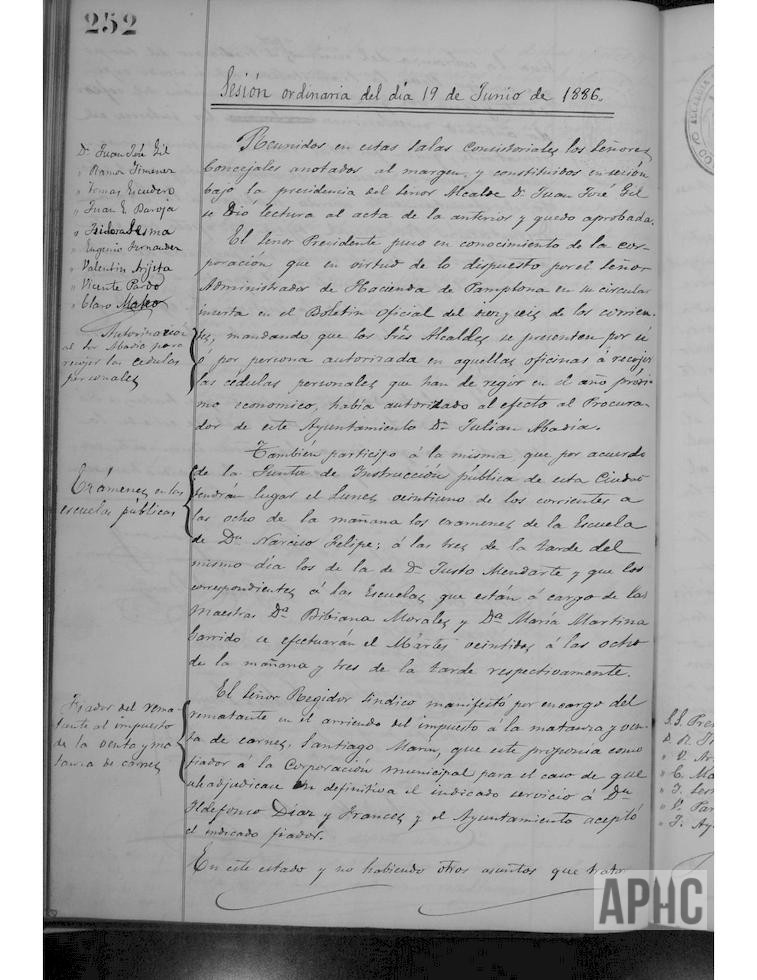 252
Sesión ordinaria del día 19 de Junio de 1886.
Dn Juan José Gil
" Ramon Jimenez
" Tomas Escudero
" Juan E. Baroja
" Isidoro Lesma
" Eugenio Fernandez
" Valentin Arijeta
" Vicente Pardo
" Claro Mateo
Reunidos en estas Salas Consistoriales los Señores
Concejales anotados al margen, y constituidos en sesión
bajo la presidencia del Señor Alcalde Dn Juan José Gil
se dió lectura al acta de la anterior y quedo aprobada.
Autorización
al Sor Abadia para
recojer las cédulas
personales
El Señor Presidente puso en conocimiento de la cor-
poración que en virtud de lo dispuesto por el Señor
Administrador de Hacienda de Pamplona en su circular
inserta en el Boletin oficial del diez y seis de los corrien-
tes, mandando que los Sres Alcaldes se presenten por si
ó por persona autorizada en aquellas oficinas á recojer
las cédulas personales que han de regir en el año próxi-
mo economico, había autorizado al efecto al Procura-
dor de este Ayuntamiento Dn Julian Abadia.
Exámenes en las
escuelas públicas
También participo á la misma que por acuerdo
de la Junta de Instrucción pública de esta Ciudad
tendrán lugar el Lunes veintiuno de los corrientes a
las ocho de la mañana los examenes de la Escuela
de Dn Narciso Felipe; á las tres de la tarde del
mismo día los de la de Dn Justo Mendarte y que los
correspondientes á las Escuelas que están á cargo de las
Maestras Da Bibiana Morales y Da Maria Martina
Garrido se efectuarán el Mártes veintidos á las ocho
de la mañana y tres de la tarde respectivamente.
Fiador del rema-
tante al impuesto
de la venta y ma
tanza de carnes
El Señor Regidor Sindico manifestó por encargo del
rematante en el arriendo del impuesto á la matanza y ven-
ta de carnes, Santiago Marin, que este proponia como
fiador á la Corporación municipal para el caso de que
se adjudicase en definitiva el indicado servicio á Dn
Ildefonso Díaz y Frances y el Ayuntamiento aceptó
el indicado fiador.
En este estado y no habiendo otros asuntos que tratar
S.S. Pres
D. R. Ji
" V. Ar
" C. Ma
" I. Les
" V. Par
" J. Ay
APHC